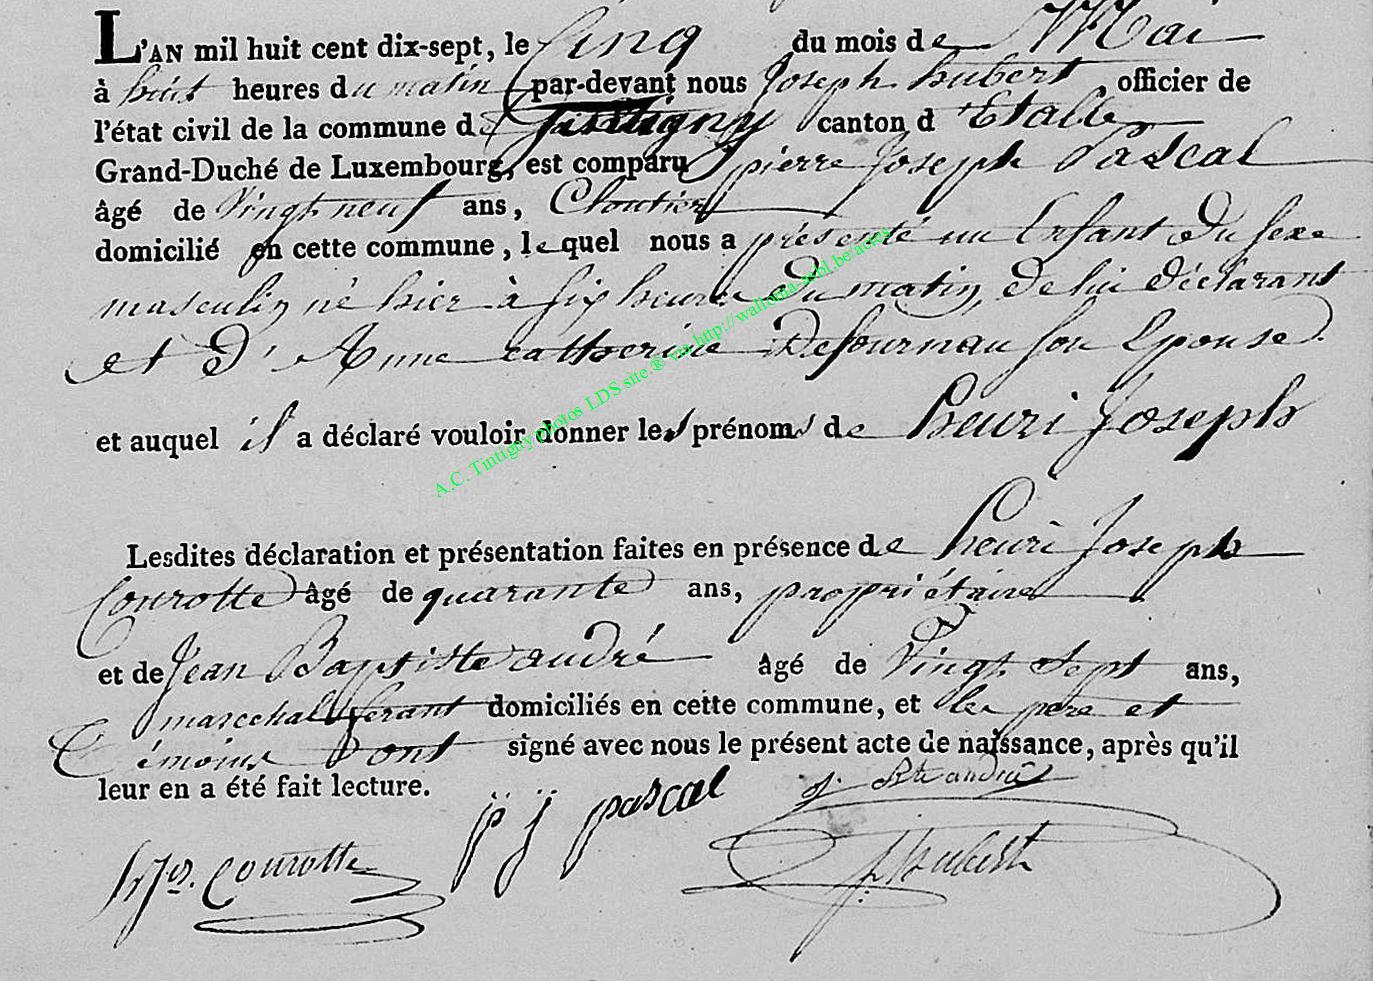 L'AN mil huit cent dix-sept, le Cinq du mois de Mai
à huit heures du matin par-devant nous Joseph hubert officier de
l'état civil de la commune de Tintigny canton d'Etalle
Grand-Duché de Luxembourg, est comparu pierre Joseph Pascal
âgé de Vingt neuf ans, Cloutier
domicilié en cette commune, lequel nous a présenté un Enfant Du sexe
masculin né hier à six heures Du matin, De lui Déclarant
et D'Anne catherine Defournau son Epouse
et auquel il a déclaré vouloir donner les prénoms de henri Joseph
Lesdites déclaration et présentation faites en présence de henri Joseph
Courotte âgé de quarante ans, propriétaire
et de Jean Baptiste andré âgé de Vingt Sept ans,
marechal ferant domiciliés en cette commune, et les père et
Témoins ont signé avec nous le présent acte de naissance, après qu'il
leur en a été fait lecture.
p j pascal
j. Bte andré
hJos. Courotte
J. hubert
A.C. Tintigny photos LDS site.® via http://wallonia-asbl.be/actes